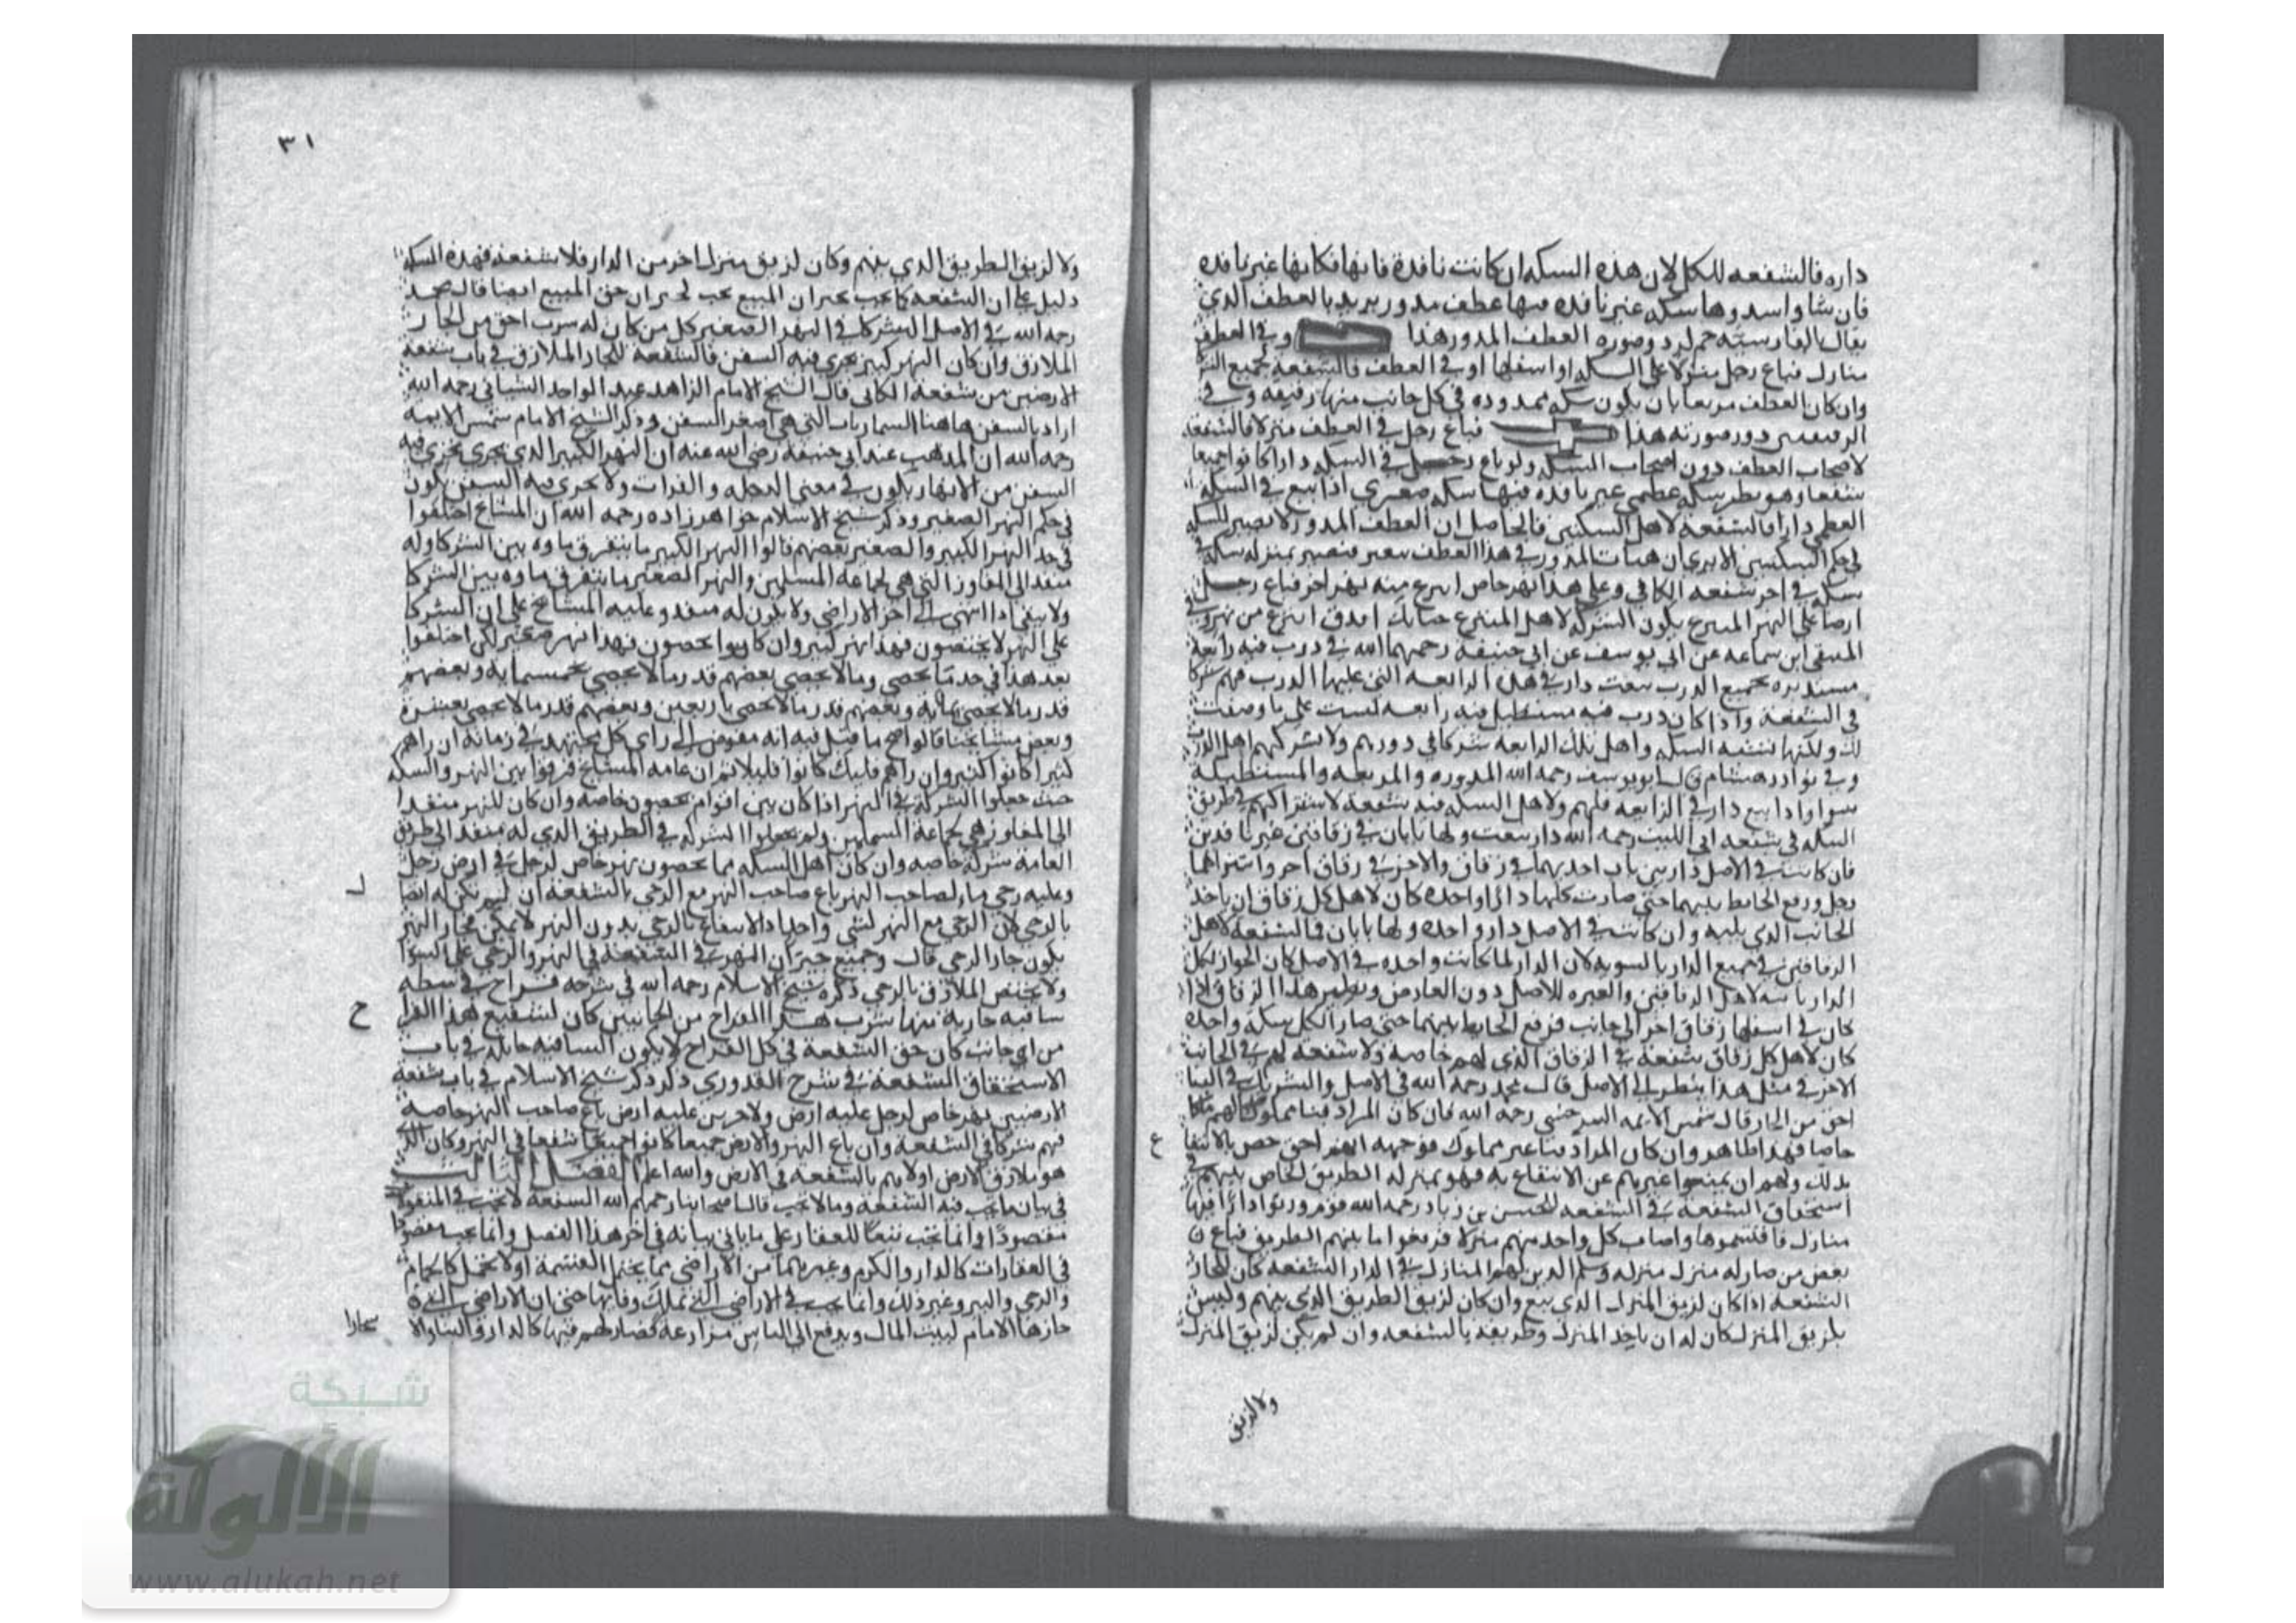 داره فالشفعه للكل لان هذه السكه ان كانت نافدة فانها فكانها غير نافده
فان شاوا سدوها سكه غير نافده فيها عطف مدور يريد بالعطف الذي
يقال بالفارسية حم لرد وصوره العطف المدور هذا وفي العطف
منازل فباع رجل منزلا على السكه او اسفلها او في العطف فالشفعه لجميع
وان كان العطف مربعا بان يكون سكه ممدوده في كل جانب منها رقيقه وفي
دور صورته هذا فباع رجل في العطف منزلا فالشفعه
لاصحاب العطف دون اصحاب السكه ولو باع رجل في السكه دارا كانوا جميعا
شفعا وهو نظير سكه عظمى غير نافده فيها سكه صغرى اذا بيع في السكه
العظمى دارا فالشفعه لاهل السكتين فالحاصل ان العطف المدور لا يصير للسكه
في حكم السكتين الا يرى ان هيات الدور في هذا العطف تتغير فتصير بمنزله سكه في
سكه في اخر شفعه الكافي وعلى هذا نهر خاص انتزع منه نهر اخر فباع رجل
ارضا على النهر المنتزع يكون الشركه لاهل المنتزع
المنتقى ابن سماعه عن ابي يوسف عن ابي حنيفه رحمهما الله في درب فيه رابعه
مستديره بجميع الدرب بيعت دار في هذه الرابعه التي عليها الدرب فهم شركا
في الشفعه واذا كان درب فيه مستطيل فيه رابعه ليست على ما وصفت
لك ولكنها تشبه السكه واهل تلك الرابعه شركا في دورهم ولا يشركهم اهل الدرب
وفي نوادر هشام قال ابو يوسف رحمه الله المدوره والمربعه والمستطيله
سوا واذا بيع دار في الرابعه فلهم ولاهل السكه فيه شفعه لاشتراكهم في طريق
السكه في شفعه ابي الليث رحمه الله دار بيعت ولها بابان في زقاقين غير نافدين
فان كانت في الاصل دارين باب احديهما في زقاق والاخر في زقاق اخر واشتراهما
رجل ورفع الحايط بينهما حتى صارت كلها دارا واحده كان لاهل كل زقاق ان ياخذ
الجانب الذي يليه وان كانت في الاصل دار واحده ولها بابان فالشفعه لاهل
الزقاقين في جميع الدار بالسويه لان الدار لما كانت واحده في الاصل كان الجوار لكل
الدار ثابته لاهل الزقاقين والعبره للاصل دون العارض ونظير هذا الزقاق اذا
كان في اسفلها زقاق اخر الى جانب فرفع الحايط بينهما حتى صار الكل سكه واحده
كان لاهل كل زقاق شفعه في الزقاق الذي لهم خاصه ولا شفعه لهم في الجانب
الاخر في مثل هذا ينظر الى الاصل قال محمد رحمه الله في الاصل والشريك في البنا
احق من الجار قال شمس الايمه السرخسي رحمه الله فان كان المراد فنا مملوكا لهم ملكا
خاصا فهذا ظاهر وان كان المراد فنا غير مملوك فوجهه انهم احق خص بالانتفاع
بذلك ولهم ان يمنعوا غيرهم عن الانتفاع به فهو بمنزله الطريق الخاص بينهم في
استحقاق الشفعه في الشفعه للحسن بن زياد رحمه الله قوم ورثوا دارا فيها
منازل فاقتسموها واصاب كل واحد منهم منزلا فرفعوا ما بينهم الطريق فباع
بعض من صار له منزل منزله وسلم الدين لهم المنازل في الدار الشفعه كان للجار
الشفعه اذا كان لزيق المنزل الذي بيع وان كان لزيق الطريق الذي بينهم وليس
بلزيق المنزل كان له ان ياخذ المنزل وطريقه بالشفعه وان لم يكن لزيق المنزل
ولا لزيق
٣١
ولا لزيق الطريق الذي بينهم وكان لزيق منزل اخر من الدار فلا شفعه فهذه المسله
دليل على ان الشفعه كما يجب بجيران المبيع يجب لجيران حق المبيع ايضا قال محمد
رحمه الله في الاصل الشركا في النهر الصغير كل من كان له شرب احق من الجار
الملازق وان كان النهر كبير يجري فيه السفن فالشفعه للجار الملازق في باب شفعه
الارضين من شفعه الكافي قال الشيخ الامام الزاهد عبد الواحد الشيباني رحمه الله
اراد بالسفن هاهنا السماريات التي هي اصغر السفن وذكر الشيخ الامام شمس الايمه
رحمه الله ان المذهب عند ابي حنيفه رضي الله عنه ان النهر الكبير الذي يجري فيه
السفن من الانهار يكون في معنى الدجله والفرات ولا يجري فيه السفن يكون
في حكم النهر الصغير وذكر شيخ الاسلام خواهرزاده رحمه الله ان المشايخ اختلفوا
في حد النهر الكبير والصغير بعضهم قالوا النهر الكبير ما يتفرق ماوه بين الشركا وله
منفذ الى المفاوز التي هي لجماعه المسلمين والنهر الصغير ما يتفرق ماوه بين الشركا
ولا يبقى اذا انتهى الى اخر الاراضي ولا يكون له منفذ وعليه المشايخ على ان الشركا
على النهر لا يحصون فهذا نهر كبير وان كانوا يحصون فهذا نهر صغير لكن اختلفوا
بعد هذا في حد ما يحصى وما لا يحصى بعضهم قدر ما لا يحصى بخمسمايه وبعضهم
قدر ما لا يحصى بمايه وبعضهم قدر ما لا يحصى باربعين وبعضهم قدر ما لا يحصى بعشره
وبعض مشايخنا قالوا اصح ما قيل فيه انه مفوض الى راي كل مجتهد في زمانه ان راهم
كثيرا كانوا كثير وان راهم قليلا كانوا قليلا ثم ان عامه المشايخ فرقوا بين النهر والسكه
حيث جعلوا الشركه في النهر اذا كان بين اقوام يحصون خاصه وان كان للنهر منفذا
الى المفاوز هي لجماعه المسلمين ولم يجعلوا الشركه في الطريق الذي له منفذ الى طريق
العامه شركه خاصه وان كان اهل السكه مما يحصون نهر خاص لرجل في ارض رجل
وعليه رحى ما لصاحب النهر باع صاحب النهر مع الرحى بالشفعه ان لم يكن له ايضا
بالرحى لان الرحى مع النهر لشي واحد اذ الانتفاع بالرحى بدون النهر لا يمكن فجار النهر
يكون جار الرحى قال وجميع جيران النهر في الشفعه في النهر والرحى على السوا
ولا يختص الملازق بالرحى ذكره شيخ الاسلام رحمه الله في شرحه قراح في وسطه
ساقيه جاريه منها شرب هذا القراح من الجانبين كان لشفيع هذا القراح
من اي جانب كان حق الشفعه في كل القراح لا يكون الساقيه حايله في باب
الاستحقاق الشفعه في شرح القدوري ذكر ذكر شيخ الاسلام في باب شفعه
الارضيين نهر خاص لرجل عليه ارض ولاخرين عليه ارض باع صاحب النهر خاصه
فهم شركا في الشفعه وان باع النهر والارض جميعا كانوا جميعا شفعا في النهر وكان الذي
هو ملازق الارض اولاهم بالشفعه في الارض والله اعلم الفصل الثالث
في بيان ما يجب فيه الشفعه وما لا يجب قال اصحابنا رحمهم الله الشفعه لا تجب في المنقول
مقصودا وانما تجب تبعا للعقار على ما ياتي بيانه في اخر هذا الفصل وانما يجب مقصودا
في العقارات كالدار والكرم وغيرهما من الاراضي مما يحتمل القسمه او لا يحتمل كالحمام
والرحى والبير وغير ذلك وانما يجب في الاراضي التي تملك رقابها حتى ان الاراضي التي
حازها الامام لبيت المال ويدفع الى الناس مزارعه فصار لهم فيها كالدار والبنا والا
ح
ع
شبكة
الألوكة
www.alukah.net